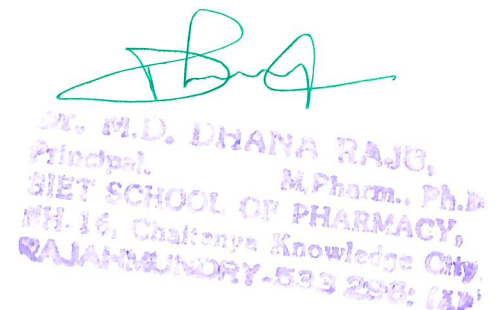 Dr. M.D. DHANA RAJU,
Principal. M.Pharm., Ph.D
GIET SCHOOL OF PHARMACY,
NH. 16, Chaitanya Knowledge City
RAJAHMUNDRY-533 296; (AP)